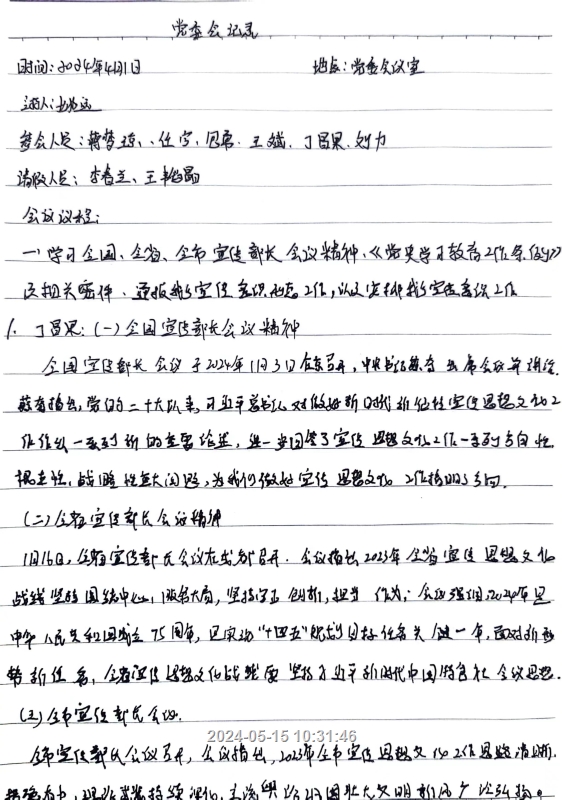 党委会记录
时间:2024年4月1日 地点:党委会议室
主持人:
参会人员: 任宇、 王斌、丁昌果、刘力
请假人员:李春兰、王
会议议程:
一、学习全国、全省、全市宣传部长会议精神、《党史学习教育工作条例》
及相关要件、通报我 宣传意识形态工作,认 安排我 宣传意识工作
1. 丁昌果:(一)全国宣传部长会议精神
全国宣传部长会议于2024年1月3日在京召开,中央书记 蔡奇出席会议并讲话.
蔡奇指出,党的二十大以来,习近平总书记对做好新时代新征程宣传思想文化工
作作出一系列新的重要论述,进一步回答了宣传思想文化工作一系列方向性、
根本性、战略性重大问题,为我们做好宣传思想文化工作指明了方向.
(二)全省宣传部长会议精神
1月16日,全省宣传部长会议在成都召开.会议指出2023年全省宣传思想文化
战线坚持围绕中心、服务大局,坚持守正创新,担当作为;会议强调,2024年是
中华人民共和国成立75周年,是实现“十四五”规划目标任务关键一年,面对新形
势新任务,全省宣传思想文化战线要坚持习近平新时代中国特色社会主义思想.
(三)全市宣传部长会议.
2024-05-15 10:31:46
全市宣传部长会议召开,会议指出,2023年全市宣传思想文化工作思路清晰.